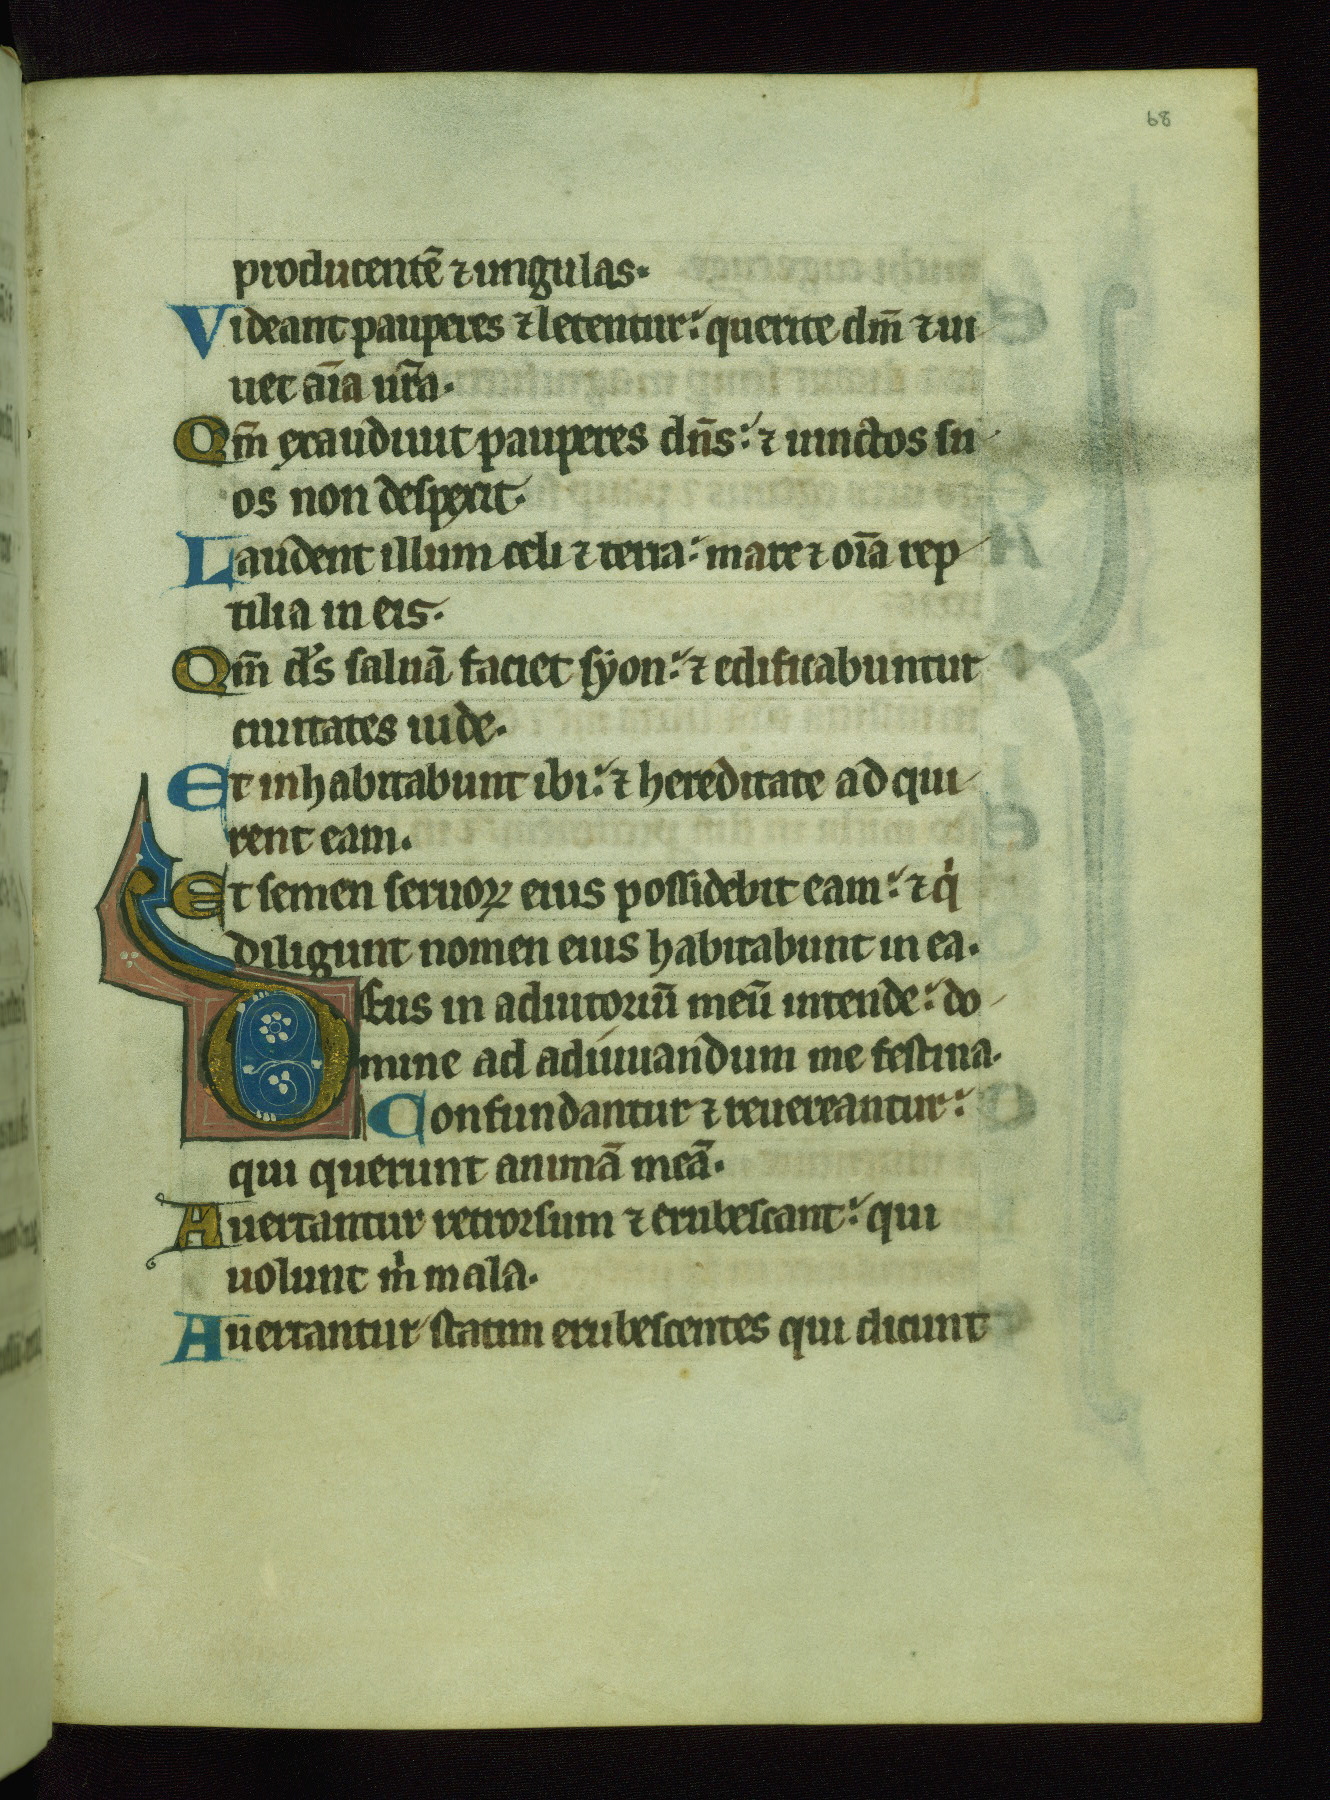 68
producentē ⁊ ungulas.
Videant pauperes ⁊ letentur: querite dm̄ ⁊ ui
uet aīa ur̄a.
Qm̄ exaudiuit pauperes dn̄s: ⁊ uinctos su
os non despexit.
Laudent illum celi ⁊ terra: mare ⁊ oīa rep
tilia in eis.
Qm̄ ds̄ saluā faciet syon: ⁊ edificabuntur
ciuitates iude.
Et inhabitabunt ibi: ⁊ hereditate adqui
rent eam.
Et semen seruoꝝ eius possidebit eam: ⁊ qi
diligunt nomen eius habitabunt in ea.
Deus in adiutoriū meū intende: do
mine ad adiuuandum me festina.
Confundantur ⁊ reuereantur:
qui querunt animā meā.
Auertantur retrorsum ⁊ erubescant: qui
uolunt m̄ mala.
Auertantur statim erubescentes qui dicunt